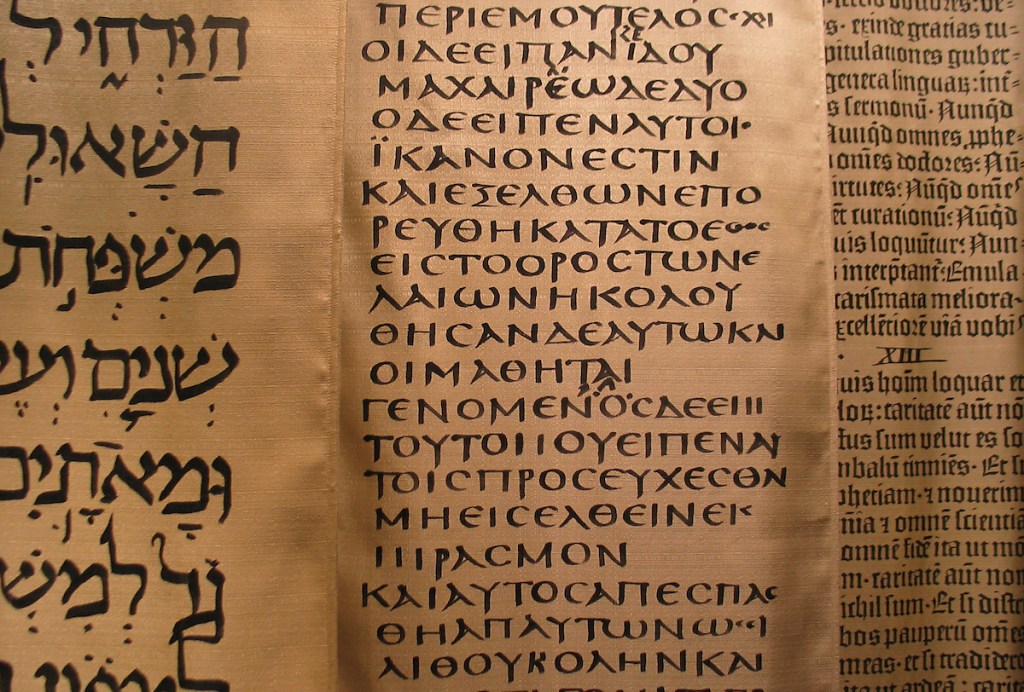 הַזַּרְחִ֑י לְ
הַשָּׁאוּלִ
מִשְׁפְּחֹ֣ת
שְׁנַ֧יִם וְעֶ
וּמָאתָֽיִם
גָד לְמִשְׁ
ΠΕΡΙΕΜΟΥΤΕΛΟС·ΧΙ
ΟΙΔΕΕΙΠΑΝΙΔΟΥ
ΜΑΧΑΙΡΕΩΔΕΔΥΟ
ΟΔΕΕΙΠΕΝΑΥΤΟΙ·
ΪΚΑΝΟΝΕСΤΙΝ
ΚΑΙΕΞΕΛΘΩΝΕΠΟ
ΡΕΥΘΗΚΑΤΑΤΟΕΘΟС
ΕΙСΤΟΟΡΟСΤΩΝΕ
ΛΑΙΩΝΗΚΟΛΟΥ
ΘΗСΑΝΔΕΑΥΤΩΚΝ
ΟΙΜΑΘΗΤΑΙ
ΓΕΝΟΜΕΝΟСΔΕΕΙΙΙ
ΤΟΥΤΟΙΙΟΥΕΙΠΕΝΑΥ
ΤΟΙСΠΡΟСΕΥΧΕСΘΝ
ΜΗΕΙСΕΛΘΕΙΝΕΙ
ΙΙΙΡΑСΜΟΝ
ΚΑΙΑΥΤΟСΑΠΕСΠΑС
ΘΗΑΠΑΥΤΩΝΩ
ΛΙΘΟΥΚΟΛΗΝΚΑΙ
exinde gratias cu-
pitulationes guber-
genera linguaꝝ: int̄-
s sermonū. Nunq̄d
Nunq̄d omnes ꝓphe-
omēs doctores: Nū-
irtutes: Nūq̄d omēs
et curationū: Nūq̄d
uis loquūtur: Nun-
interp̄tant͛: Emula
carismata meliora.
xcellētiorē viā vobis
XIII
uis hoīm loquar et
loꝝ: caritatē aūt nō
tus sum velut es so
mbalū tinniēs. Et si
phetiam ⁊ noverim
nia ⁊ omnē scientiā
omnē fidē ita ut mō
m. caritatē aūt non
ichil sum. Et si distr
bos pauperū omēs
meas. et si tradidero